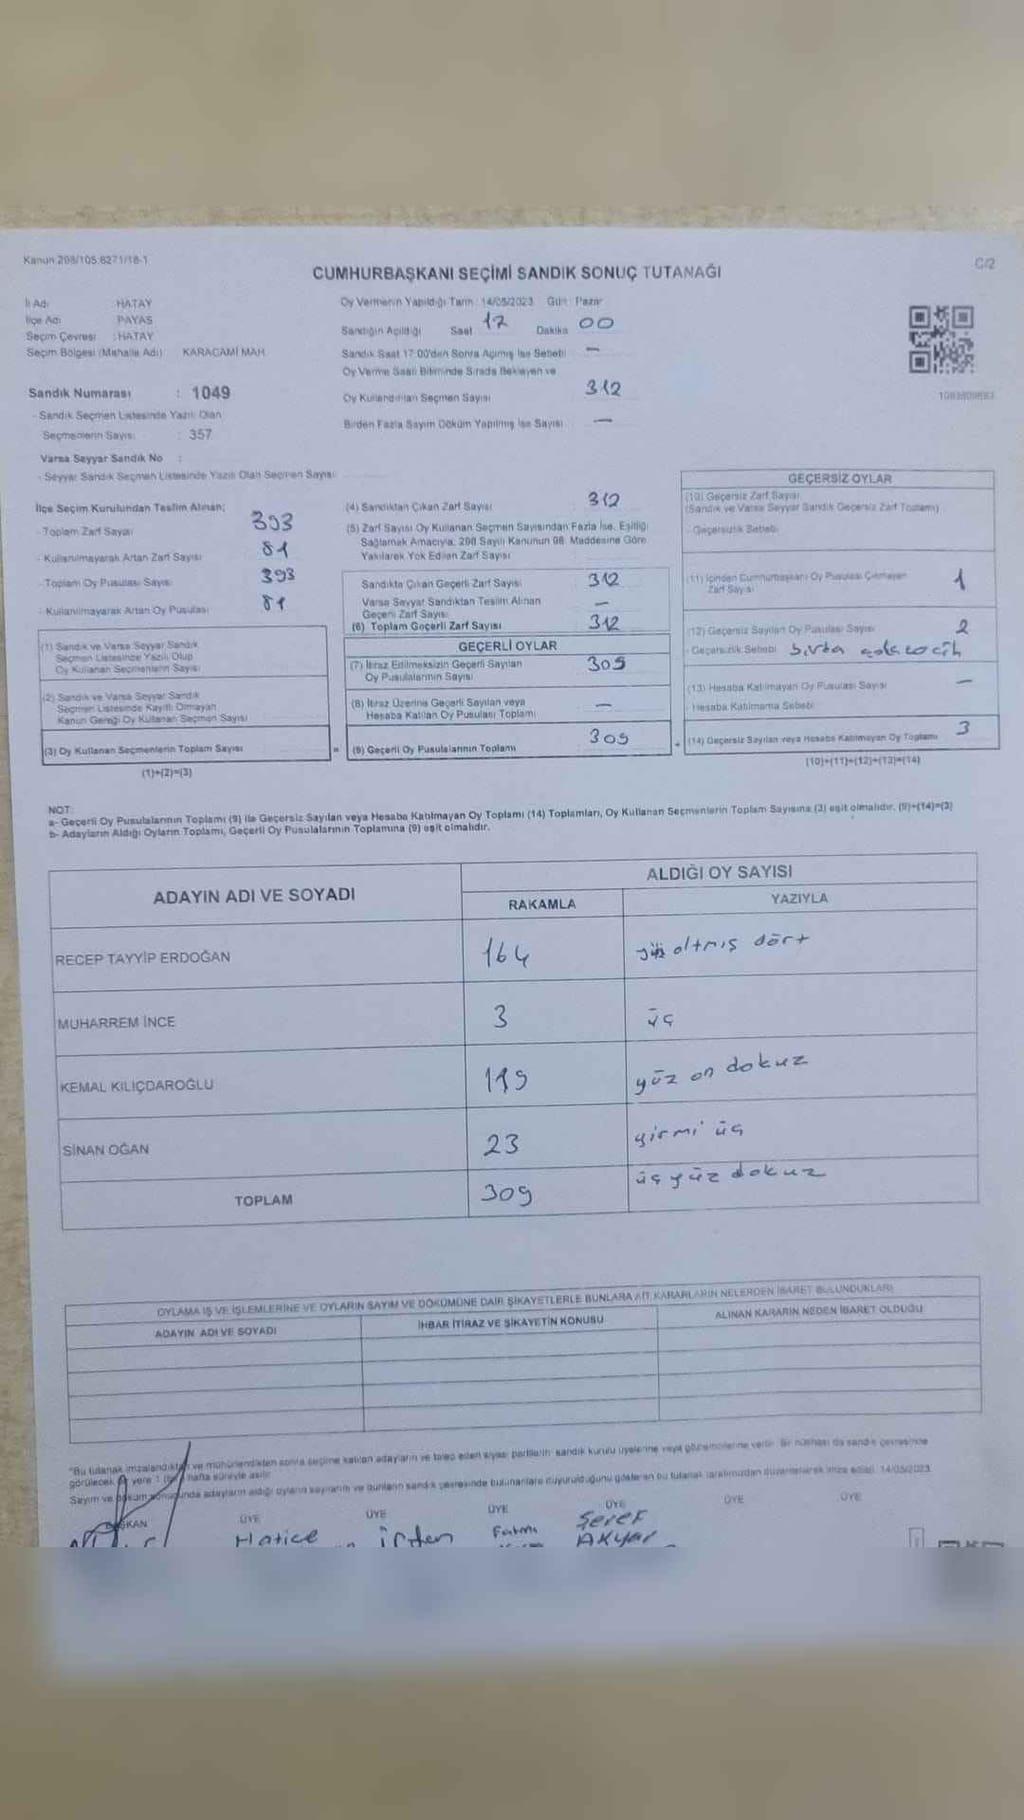 Kanun 298/105 6271/18-1
C/2
CUMHURBAŞKANI SEÇİMİ SANDIK SONUÇ TUTANAĞI
İl Adı HATAY
İlçe Adı PAYAS
Seçim Çevresi : HATAY
Seçim Bölgesi (Mahalle Adı) KARACAMİ MAH.
Sandık Numarası : 1049
- Sandık Seçmen Listesinde Yazılı Olan
Seçmenlerin Sayısı : 357
Varsa Seyyar Sandık No :
- Seyyar Sandık Seçmen Listesinde Yazılı Olan Seçmen Sayısı
Oy Vermenin Yapıldığı Tarih : 14/05/2023 Gün : Pazar
Sandığın Açıldığı Saat 17 Dakika 00
Sandık Saat 17:00'den Sonra Açılmış İse Sebebi —
Oy Verme Saati Bitiminde Sırada Bekleyen ve
Oy Kullandırılan Seçmen Sayısı 312
Birden Fazla Sayım Döküm Yapılmış İse Sayısı —
İlçe Seçim Kurulundan Teslim Alınan;
- Toplam Zarf Sayısı 393
- Kullanılmayarak Artan Zarf Sayısı 81
- Toplam Oy Pusulası Sayısı 393
- Kullanılmayarak Artan Oy Pusulası 81
(1) Sandık ve Varsa Seyyar Sandık
Seçmen Listesinde Yazılı Olup
Oy Kullanan Seçmenlerin Sayısı
(2) Sandık ve Varsa Seyyar Sandık
Seçmen Listesinde Kayıtlı Olmayan
Kanun Gereği Oy Kullanan Seçmen Sayısı
(3) Oy Kullanan Seçmenlerin Toplam Sayısı
(1)+(2)=(3)
(4) Sandıktan Çıkan Zarf Sayısı 312
(5) Zarf Sayısı Oy Kullanan Seçmen Sayısından Fazla İse, Eşitliği
Sağlamak Amacıyla, 298 Sayılı Kanunun 98. Maddesine Göre
Yakılarak Yok Edilen Zarf Sayısı
Sandıkta Çıkan Geçerli Zarf Sayısı 312
Varsa Seyyar Sandıktan Teslim Alınan
Geçerli Zarf Sayısı —
(6) Toplam Geçerli Zarf Sayısı 312
GEÇERLİ OYLAR
(7) İtiraz Edilmeksizin Geçerli Sayılan
Oy Pusulalarının Sayısı 309
(8) İtiraz Üzerine Geçerli Sayılan veya
Hesaba Katılan Oy Pusulası Toplamı —
= (9) Geçerli Oy Pusulalarının Toplamı 309
GEÇERSİZ OYLAR
(10) Geçersiz Zarf Sayısı
(Sandık ve Varsa Seyyar Sandık Geçersiz Zarf Toplamı)
- Geçersizlik Sebebi
(11) İçinden Cumhurbaşkanı Oy Pusulası Çıkmayan
Zarf Sayısı 1
(12) Geçersiz Sayılan Oy Pusulası Sayısı 2
- Geçersizlik Sebebi
(13) Hesaba Katılmayan Oy Pusulası Sayısı —
- Hesaba Katılmama Sebebi
+ (14) Geçersiz Sayılan veya Hesaba Katılmayan Oy Toplamı 3
(10)+(11)+(12)+(13)=(14)
NOT:
a- Geçerli Oy Pusulalarının Toplamı (9) ile Geçersiz Sayılan veya Hesaba Katılmayan Oy Toplamı (14) Toplamları, Oy Kullanan Seçmenlerin Toplam Sayısına (3) eşit olmalıdır. (9)+(14)=(3)
b- Adayların Aldığı Oyların Toplamı, Geçerli Oy Pusulalarının Toplamına (9) eşit olmalıdır.
ADAYIN ADI VE SOYADI
ALDIĞI OY SAYISI
RAKAMLA YAZIYLA
RECEP TAYYİP ERDOĞAN 164 yüz altmış dört
MUHARREM İNCE 3 üç
KEMAL KILIÇDAROĞLU 119 yüz on dokuz
SİNAN OĞAN 23 yirmi üç
TOPLAM 309 üç yüz dokuz
OYLAMA İŞ VE İŞLEMLERİNE VE OYLARIN SAYIM VE DÖKÜMÜNE DAİR ŞİKAYETLERLE BUNLARA AİT KARARLARIN NELERDEN İBARET BULUNDUKLARI
ADAYIN ADI VE SOYADI
İHBAR İTİRAZ VE ŞİKAYETİN KONUSU
ALINAN KARARIN NEDEN İBARET OLDUĞU
"Bu tutanak imzalandıktan ve mühürlendikten sonra seçime katılan adayların ve talep eden siyasi partilerin sandık kurulu üyelerine veya gözlemcilerine verilir. Bir nüshası da sandık çevresinde
görülecek bir yere 1 (bir) hafta süreyle asılır.
Sayım ve döküm sonucunda adayların aldığı oyların sayılarını ve bunların sandık çevresinde bulunanlara duyurulduğunu gösteren bu tutanak tarafımızdan düzenlenerek imza edildi. 14/05/2023
BAŞKAN ÜYE ÜYE ÜYE ÜYE ÜYE ÜYE
Hatice Fatma Şeref
Akyar